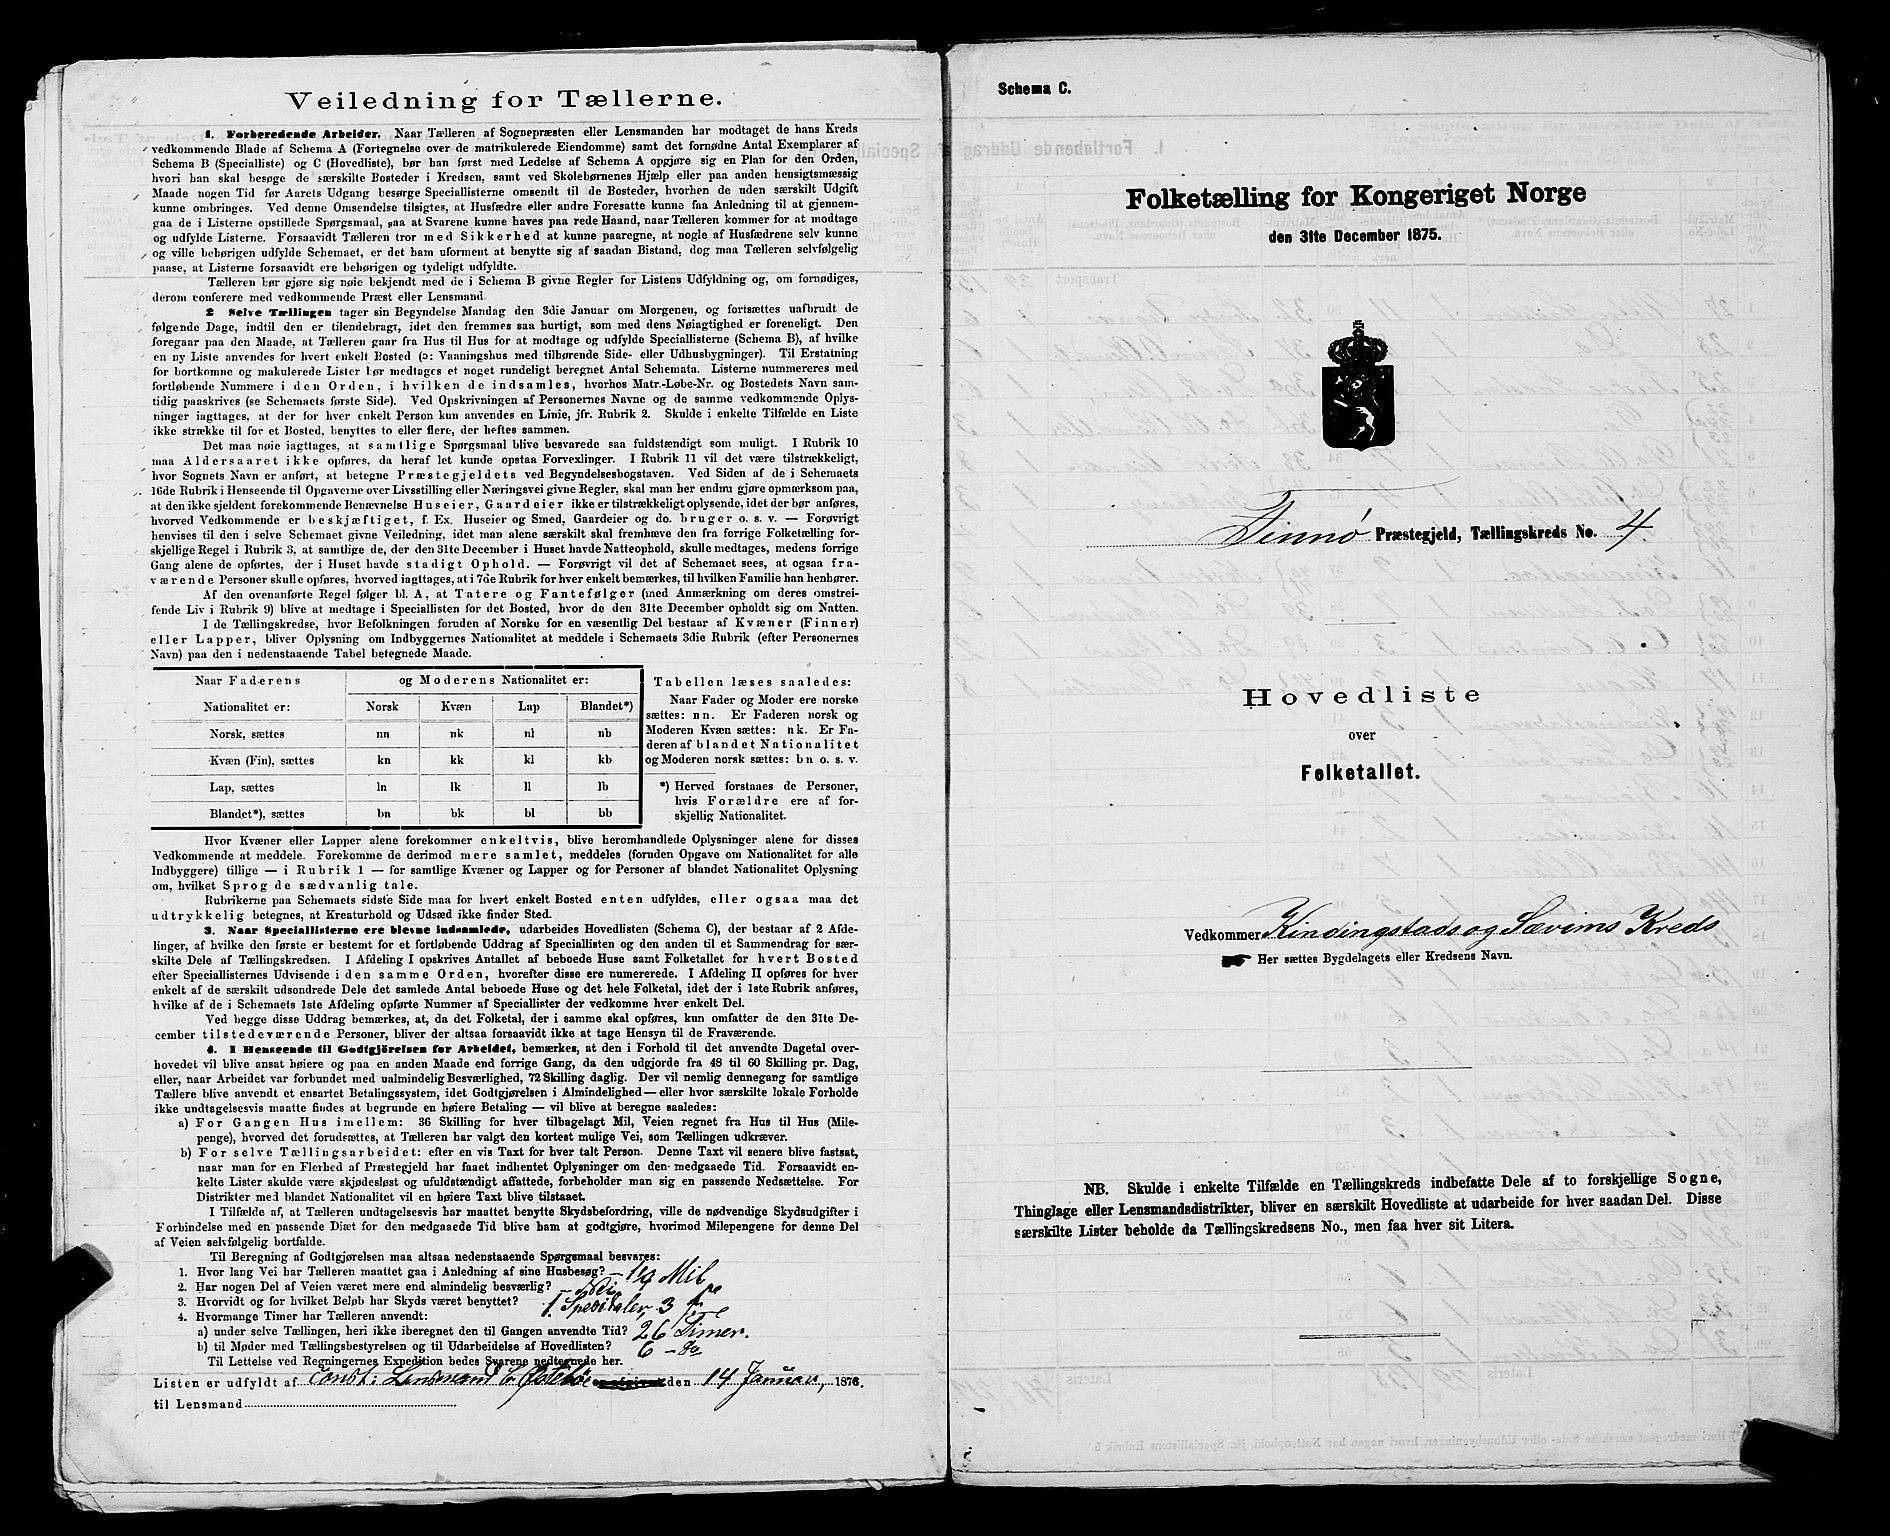 Veiledning for Tællerne.
1. Forberedende Arbeider. Naar Tælleren af Sognepræsten eller Lensmanden har modtaget de hans Kreds
vedkommende Blade af Schema A (Fortegnelse over de matrikulerede Eiendomme) samt det fornødne Antal Exemplarer af
Schema B (Specialliste) og C (Hovedliste), bør han først med Ledelse af Schema A opgjøre sig en Plan for den Orden,
hvori han skal besøge de særskilte Bosteder i Kredsen, samt ved Skolebørnenes Hjælp eller paa anden hensigtsmæssig
Maade nogen Tid før Aarets Udgang besørge Speciallisterne omsendt til de Bosteder, hvorhen de uden særskilt Udgift
kunne ombringes. Ved denne Omsendelse tilsigtes, at Husfædre eller andre Foresatte kunne faa Anledning til at gjennem-
gaa de i Listerne opstillede Spørgsmaal, saa at Svarene kunne haves paa rede Haand, naar Tælleren kommer for at modtage
og udfylde Listerne. Forsaavidt Tælleren tror med Sikkerhed at kunne paaregne, at nogle af Husfædrene selv kunne
og ville behørigen udfylde Schemaet, er det ham uforment at benytte sig af saadan Bistand, dog maa Tælleren selvfølgelig
paase, at Listerne forsaavidt ere behørigen og tydeligt udfyldte.
Tælleren bør gjøre sig nøie bekjendt med de i Schema B givne Regler for Listens Udfyldning og, om fornødiges,
derom conferere med vedkommende Præst eller Lensmand.
2 Selve Tællingen tager sin Begyndelse Mandag den 3die Januar om Morgenen, og fortsættes uafbrudt de
følgende Dage, indtil den er tilendebragt, idet den fremmes saa hurtigt, som med dens Nøiagtighed er foreneligt. Den
foregaar paa den Maade, at Tælleren gaar fra Hus til Hus for at modtage og udfylde Speciallisterne (Schema B), af hvilke
en ny Liste anvendes for hvert enkelt Bosted (ɔ: Vaaningshus med tilhørende Side- eller Udhusbygninger). Til Erstatning
for bortkomne og makulerede Lister bør medtages et noget rundeligt beregnet Antal Schemata. Listerne nummereres med
fortløbende Nummere i den Orden, i hvilken de indsamles, hvorhos Matr.-Løbe-Nr. og Bostedets Navn sam-
tidig paaskrives (se Schemaets første Side). Ved Opskrivningen af Personernes Navne og de samme vedkommende Oplys-
ninger iagttages, at der for hver enkelt Person kun anvendes en Linie, jfr. Rubrik 2. Skulde i enkelte Tilfælde en Liste
ikke strække til for et Bosted, benyttes to eller flere, der heftes sammen.
Det maa nøie iagttages, at samtlige Spørgsmaal blive besvarede saa fuldstændigt som muligt. I Rubrik 10
maa Aldersaaret ikke opføres, da heraf let kunde opstaa Forvexlinger. I Rubrik 11 vil det være tilstrækkeligt,
hvor Sognets Navn er anført, at betegne Præstegjeldets ved Begyndelsesbogstaven. Ved Siden af de i Schemaets
16de Rubrik i Henseende til Opgaverne over Livsstilling eller Næringsvei givne Regler, skal man her endnu gjøre opmærksom paa,
at den ikke sjeldent forekommende Benævnelse Huseier, Gaardeier ikke er tilstrækkeligt oplysende, idet der bør anføres,
hvorved Vedkommende er beskjæftiget, f. Ex. Huseier og Smed, Gaardeier og do. bruger o. s. v. — Forøvrigt
henvises til den i selve Schemaet givne Veiledning, idet man alene særskilt skal fremhæve den fra forrige Folketælling for-
skjellige Regel i Rubrik 3, at samtlige de, der den 31te December i Huset havde Natteophold, skulle medtages, medens forrige
Gang alene de opførtes, der i Huset havde stadigt Ophold. — Forøvrigt vil det af Schemaet sees, at ogsaa fra-
værende Personer skulle opføres, hvorved iagttages, at i 7de Rubrik for hver enkelt bemærkes, til hvilken Familie han henhører.
Af den ovenanførte Regel følger bl. A, at Tatere og Fantefølger (med Anmærkning om deres omstrei-
fende Liv i Rubrik 9) blive at medtage i Speciallisten for det Bosted, hvor de den 31te December opholdt sig om Natten.
I de Tællingskredse, hvor Befolkningen foruden af Norske for en væsentlig Del bestaar af Kvæner (Finner)
eller Lapper, bliver Oplysning om Indbyggernes Nationalitet at meddele i Schemaets 3die Rubrik (efter Personernes
Navn) paa den i nedenstaaende Tabel betegnede Maade.
Naar Faderens og Moderens Nationalitet er:
Nationalitet er: Norsk Kvæn Lap Blandet*)
Norsk, sættes nn nk nl nb
Kvæn (Fin), sættes kn kk kl kb
Lap, sættes ln lk ll lb
Blandet*), sættes bn bk bl bb
Tabellen læses saaledes:
Naar Fader og Moder ere norske
sættes: nn. Er Faderen norsk og
Moderen Kvæn sættes: nk. Er Fa-
deren af blandet Nationalitet
og Moderen norsk sættes: bn o. s. v.
*) Herved forstaaes de Personer,
hvis Forældre ere af for-
skjellig Nationalitet.
Hvor Kvæner eller Lapper alene forekommer enkeltvis, blive heromhandlede Oplysninger alene for disses
Vedkommende at meddele. Forekomme de derimod mere samlet, meddeles (foruden Opgave om Nationalitet for alle
Indbyggere) tillige — i Rubrik 1 — for samtlige Kvæner og Lapper og for Personer af blandet Nationalitet Oplysning
om, hvilket Sprog de sædvanlig tale.
Rubrikerne paa Schemaets sidste Side maa for hvert enkelt Bosted enten udfyldes, eller ogsaa maa det
udtrykkelig betegnes, at Kreaturhold og Udsæd ikke finder Sted.
3. Naar Speciallisterne ere blevne indsamlede, udarbeides Hovedlisten (Schema C), der bestaar af 2 Afde-
linger, af hvilke den første er bestemt for et fortløbende Uddrag af Speciallisten og den anden til et Sammendrag for sær-
skilte Dele af Tællingskredsen. I Afdeling I opskrives Antallet af beboede Huse samt Folketallet for hvert Bosted
efter Speciallisternes Udvisende i den samme Orden, hvorefter disse ere numererede. I Afdeling II opføres for hver
enkelt af de særskilt udsondrede Dele det samlede Antal beboede Huse og det hele Folketal, idet der i 1ste Rubrik anføres,
hvilke af de i Schemaets 1ste Afdeling opførte Nummer af Speciallister der vedkomme hver enkelt Del.
Ved begge disse Uddrag bemærkes, at, da det Folketal, der i samme skal opføres, kun omfatter de den 31te De-
cember tilstedeværende Personer, bliver der altsaa forsaavidt ikke at tage Hensyn til de Fraværende.
4. I Henseende til Godtgjörelsen for Arbeidet, bemærkes, at den i Forhold til det anvendte Dagetal over-
hovedet vil blive ansat høiere og paa en anden Maade end forrige Gang, da den udgjorde fra 48 til 60 Skilling pr. Dag,
eller, naar Arbeidet var forbundet med ualmindelig Besværlighed, 72 Skilling daglig. Der vil nemlig dennegang for samtlige
Tællere blive anvendt et ensartet Betalingssystem, idet Godtgjørelsen i Almindelighed — eller hvor særskilte lokale Forholde
ikke undtagelsesvis maatte findes at begrunde en høiere Betaling — vil blive at beregne saaledes:
a) For Gangen Hus imellem: 36 Skilling for hver tilbagelagt Mil, Veien regnet fra Hus til Hus (Mile-
penge), hvorved det forudsættes, at Tælleren har valgt den kortest mulige Vei, som Tællingen udkræver.
b) For selve Tællingsarbeidet: efter en vis Taxt for hver talt Person. Denne Taxt vil senere blive fastsat,
naar man for en Flerhed af Præstegjeld har faaet indhentet Oplysninger om den medgaaede Tid. Forsaavidt en-
kelte Lister skulde være skjødesløst og ufuldstændigt affattede, forbeholder man sig en passende Nedsættelse. For
Distrikter med blandet Nationalitet vil en høiere Taxt blive tilstaaet.
I Tilfælde af, at Tælleren undtagelsesvis har maattet benytte Skydsbefordring, ville de nødvendige Skydsudgifter i
Forbindelse med en passende Diæt for den medgaaede Tid blive ham at godtgjøre, hvorimod Milepengene for denne Del
af Veien selvfølgelig bortfalde.
Til Beregning af Godtgjørelsen maa altsaa nedenstaaende Spørgsmaal besvares:
1. Hvor lang Vei har Tælleren maattet gaa i Anledning af sine Husbesøg? Mil
2. Har nogen Del af Veien været mere end almindelig besværlig? Nei
3. Hvorvidt og for hvilket Beløb har Skyds været benyttet? 1. Specidaler 3
4. Hvormange Timer har Tælleren anvendt:
a) under selve Tællingen, heri ikke iberegnet den til Gangen anvendte Tid? 26 Timer.
b) til Møder med Tællingsbestyrelsen og til Udarbeidelse af Hovedlisten? 6 -
Til Lettelse ved Regningernes Expedition bedes Svarene nedtegnede her.
Listen er udfyldt af const: Lensmand den 14 Januar, 1876.
til Lensmand
Schema C.
Folketælling for Kongeriget Norge
den 31te December 1875.
Finnø Præstegjeld, Tællingskreds No. 4
Hovedliste
over
Folketallet.
Vedkommer Kindingstads og Sævims Kreds
Her sættes Bygdelagets eller Kredsens Navn.
NB. Skulde i enkelte Tilfælde en Tællingskreds indbefatte Dele af to forskjellige Sogne,
Thinglage eller Lensmandsdistrikter, bliver en særskilt Hovedliste at udarbeide for hver saadan Del. Disse
særskilte Lister beholde da Tællingskredsens No., men faa hver sit Litera.